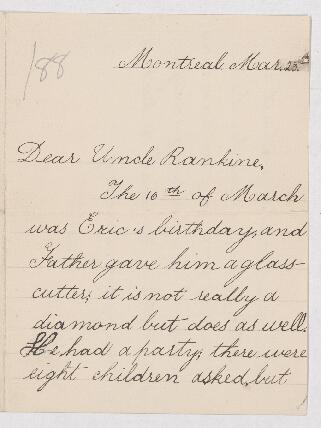 /88
Montreal, Mar. 25th
Dear Uncle Rankine,
The 10th of March
was Eric's birthday, and
Father gave him a glass-
cutter; it is not really a
diamond but does as well.
He had a party; there were
eight children asked, but